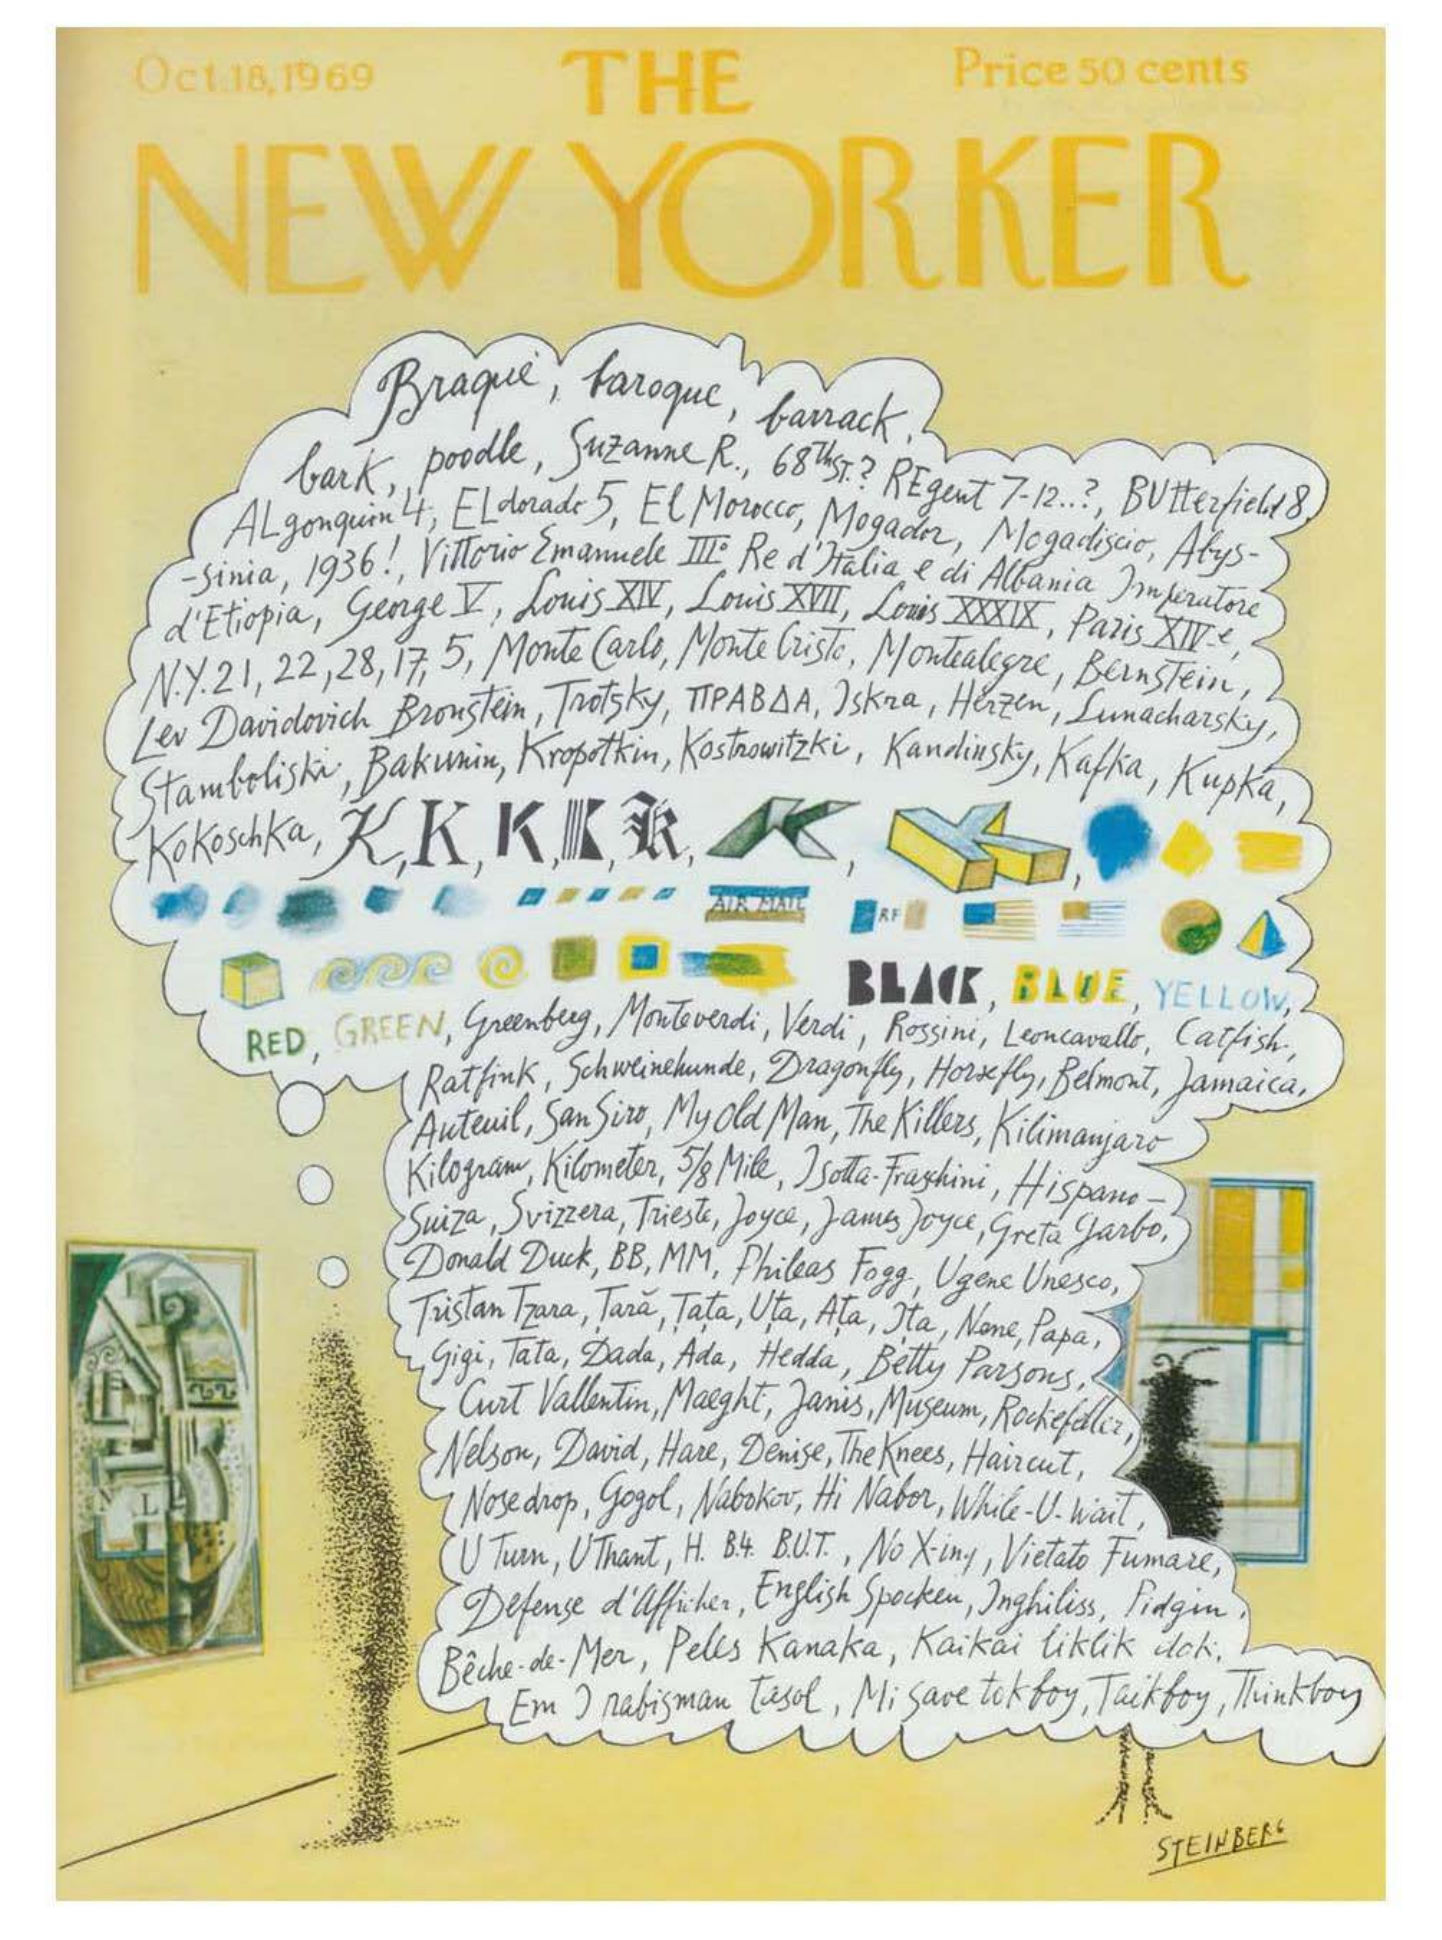 Oct.18,1969
THE
Price 50 cents
NEW YORKER
Braque, baroque, barrack,
bark, poodle, Suzanne R., 68th ST.? REgent 7-12..?, BUtterfield 8,
ALgonquin 4, ELdorado 5, El Morocco, Mogador, Mogadiscio, Abys-
-sinia, 1936!, Vittorio Emanuele III° Re d'Italia e di Albania Imperatore
d'Etiopia, George V, Louis XIV, Louis XVII, Louis XXXIX, Paris XIVe,
N.Y.21, 22, 28, 17, 5, Monte Carlo, Monte Cristo, Montealegre, Bernstein,
Lev Davidovich Bronstein, Trotsky, ПРАВДА, Iskra, Herzen, Lunacharsky,
Stamboliski, Bakunin, Kropotkin, Kostrowitzki, Kandinsky, Kafka, Kupka,
Kokoschka, K, K, K, K, K, K, K,
AIR MAIL RF
BLACK, BLUE, YELLOW,
RED, GREEN, Greenberg, Monteverdi, Verdi, Rossini, Leoncavallo, Catfish,
Ratfink, Schweinehunde, Dragonfly, Horsefly, Belmont, Jamaica,
Auteuil, San Siro, My Old Man, The Killers, Kilimanjaro
Kilogram, Kilometer, 5/8 Mile, Isotta-Fraschini, Hispano-
Suiza, Svizzera, Trieste, Joyce, James Joyce, Greta Garbo,
Donald Duck, BB, MM, Phileas Fogg, Ugene Unesco,
Tristan Tzara, Țară, Tața, Uța, Ața, Ița, Nene, Papa,
Gigi, Tata, Dada, Ada, Hedda, Betty Parsons,
Curt Vallentin, Maeght, Janis, Museum, Rockefeller,
Nelson, David, Hare, Denise, The Knees, Haircut,
Nosedrop, Gogol, Nabokov, Hi Nabor, While-U-Wait,
U Turn, U Thant, H. B.4. B.U.T., No X-ing, Vietato Fumare,
Defense d'Afficher, English Spocken, Inghiliss, Pidgin,
Bêche-de-Mer, Peles Kanaka, Kaikai liklik dok,
Em I rabisman tasol, Mi save tokboy, Talkboy, Thinkboy
L
STEINBERG